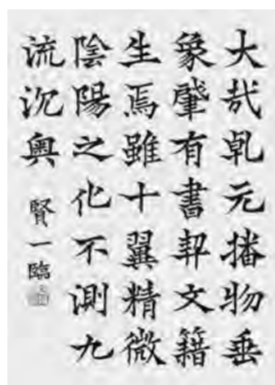 大哉乹元播物垂
象肇有書契文籍
生焉雖十翼精微
陰陽之化不測九
流沉奥
賢一臨